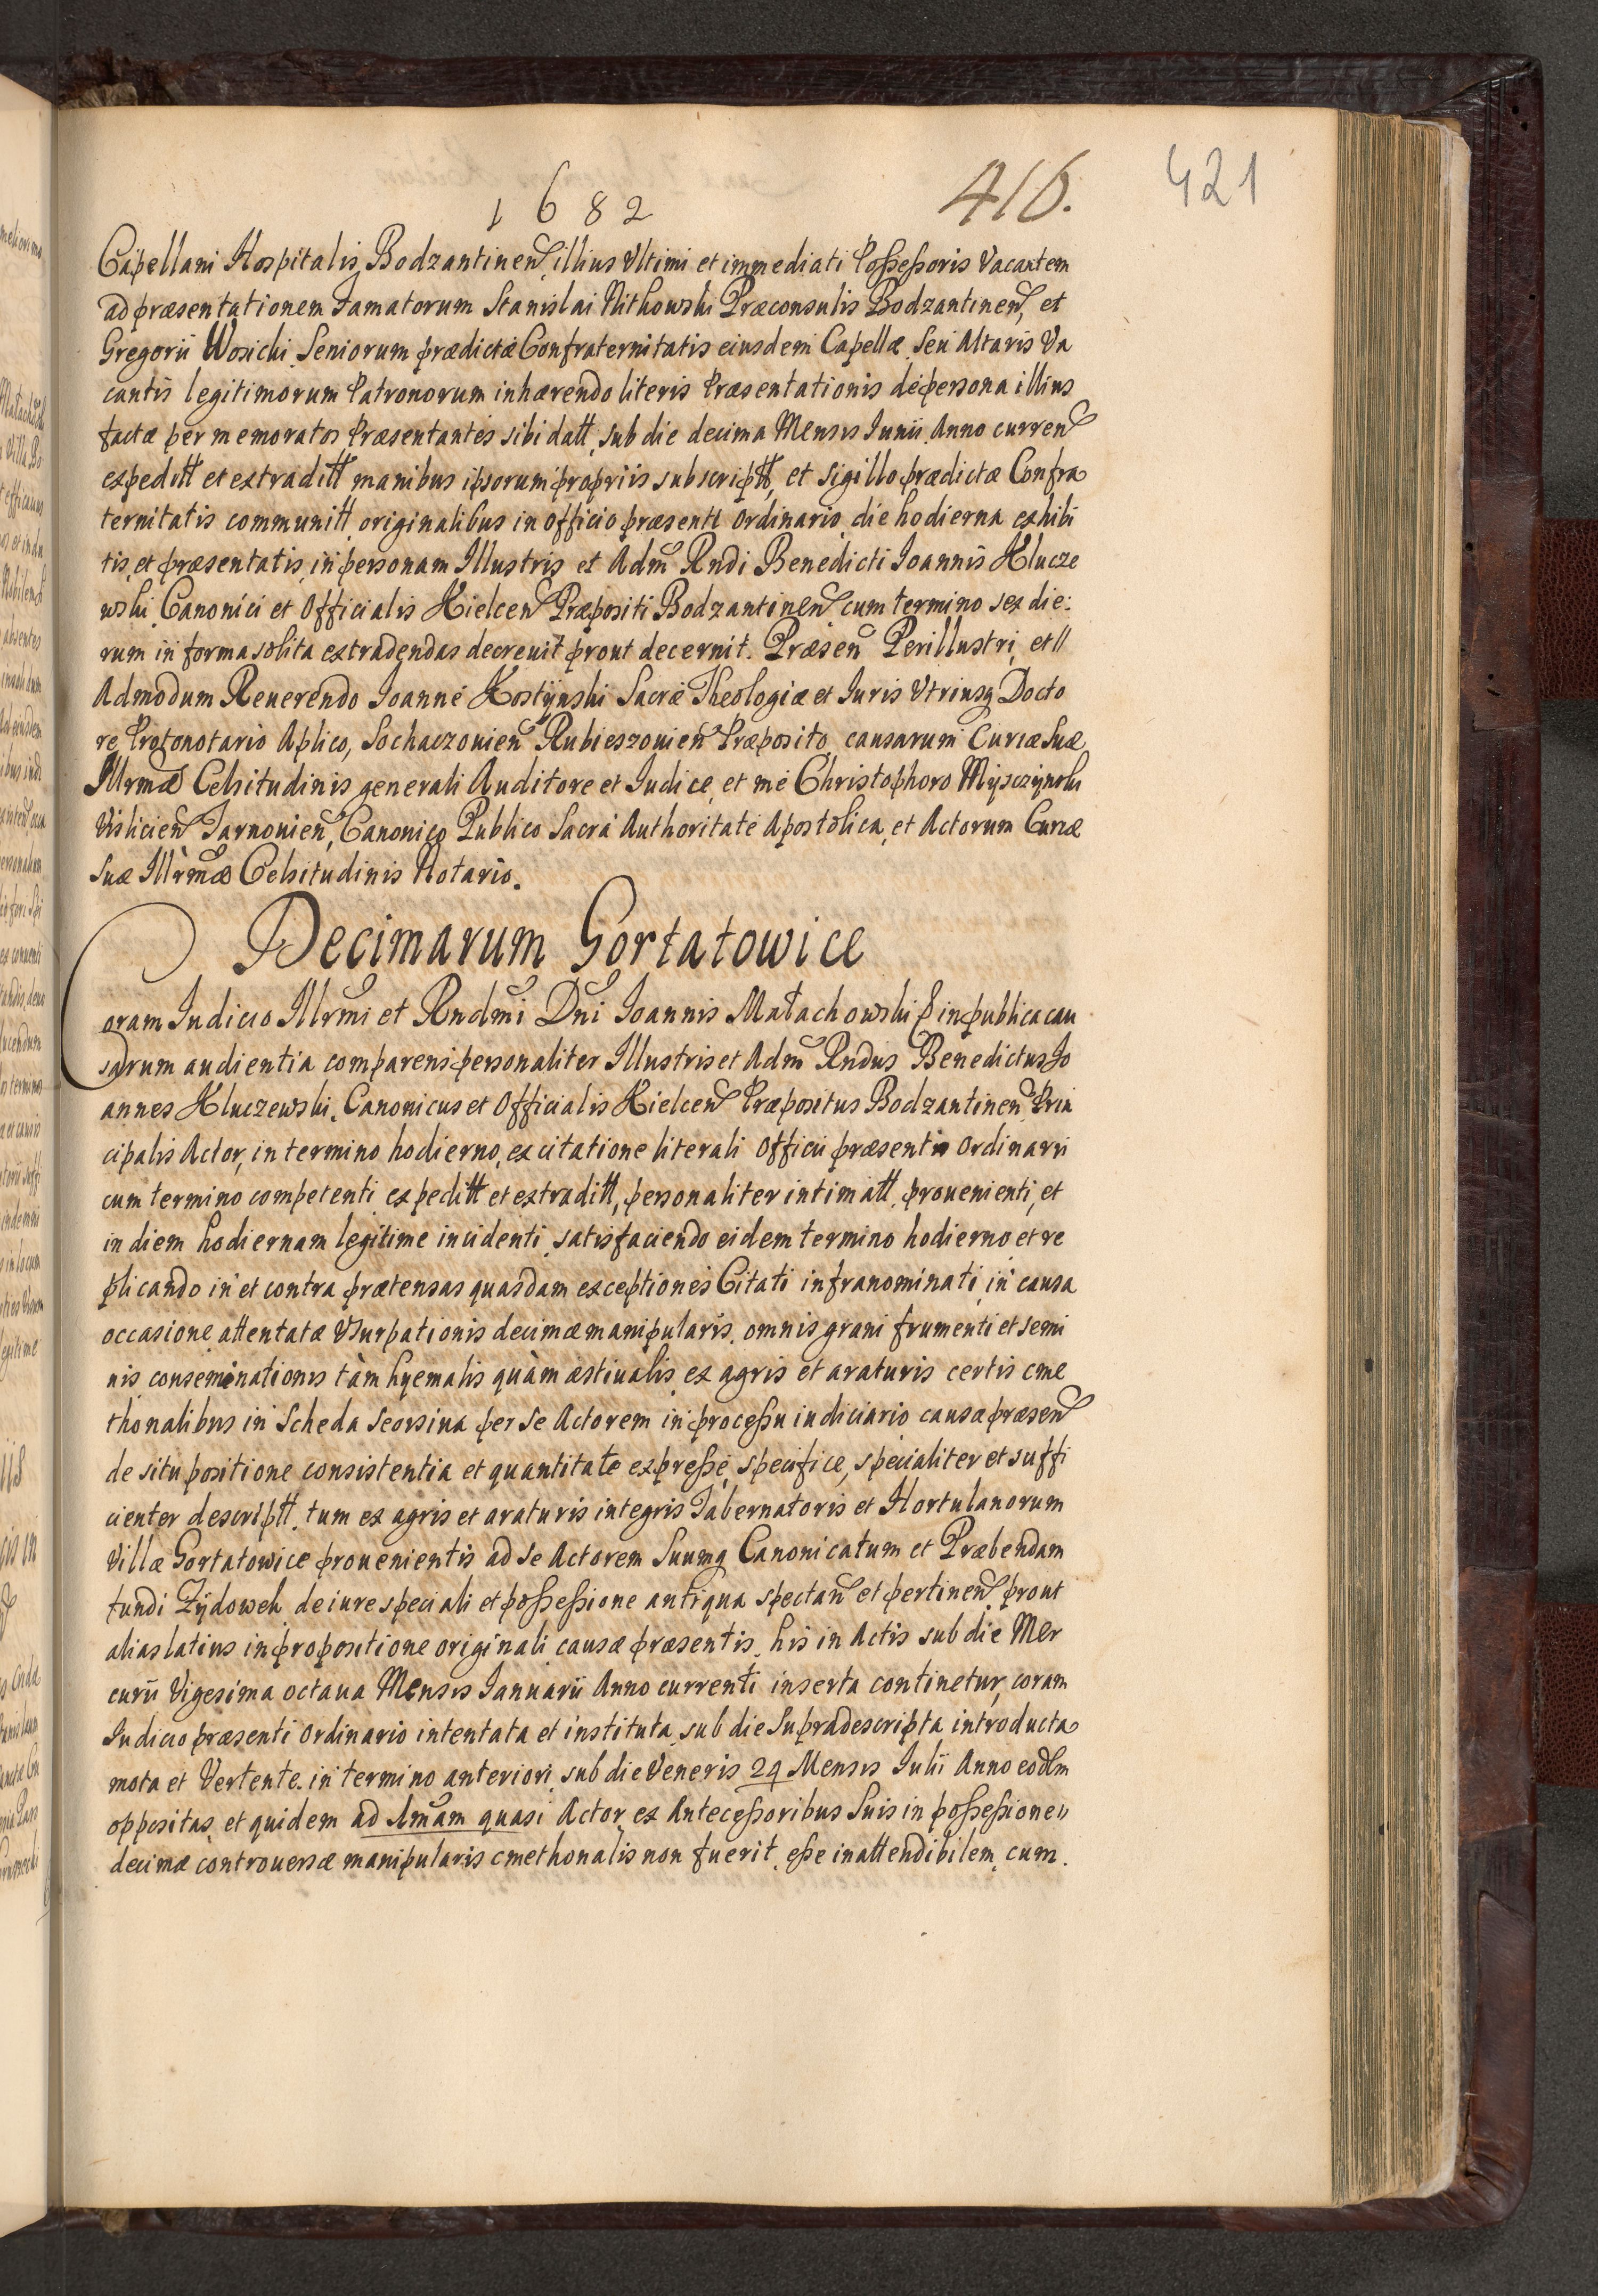 1682 416. 421
Capellani Hospitalis Bodzantinen̄ illius Vltimi et immediati Possessoris Vacantem
ad præsentationem Famatorum Stanislai Nitkowski Præconsulis Bodzantinen̄, et
Gregorii Wosicki Seniorum prædictæ Confraternitatis eiusdem Capellæ Seu Altaris Va
cantis legitimorum Patronorum inhærendo literis Præsentationis de persona illius
factæ per memoratos Præsentantes sibi datt, sub die decima Mensis Iunii Anno curren̄
expeditt et extraditt manibus ipsorum propriis subscriptt, et sigillo prædictæ Confra
ternitatis communitt originalibus in officio præsenti ordinario die hodierna exhibi
tis, et præsentatis, in personam Illustris et Adm̄ Rn̄di Benedicti Ioannis Klucze
wski Canonici et Officialis Kielcen̄ Præpositi Bodzantinen̄ cum termino sex die:
rum in forma solita extradendas decreuit prout decernit. Præsen̄ Perillustri, et //
Admodum Reuerendo Ioanne Kostynski Sacræ Theologiæ et Iuris Vtriusq Docto
re Protonotario Aplico, Sochaczouien̄ Rubieszouien̄ Præposito causarum Curiæ Suæ
Illrmæ Celsitudinis generali Auditore et Iudice, et me Christophoro Mysczynski
Vislicien̄ Tarnouien̄, Canonico Publico Sacra Authoritate Apostolica, et Actorum Curiæ
Suæ Illrmæ Celsitudinis Notario.
Decimarum Gortatowice
Coram Iudicio Illrmi et Rndmi Dn̄i Ioannis Małachowski P in publica cau
sarum audientia comparens personaliter Illustris et Adm̄ Rn̄dus Benedictus Io
annes Kluczewski, Canonicus et Officialis Kielcen̄ Præpositus Bodzantinen̄ Prin
cipalis Actor, in termino hodierno, ex citatione literali Officii præsentis Ordinarii
cum termino competenti expeditt et extraditt, personaliter intimatt, prouenienti, et
in diem hodiernam legitime incidenti, satisfaciendo eidem termino hodierno et re
plicando in et contra prætensas quasdam exceptiones Citati infranominati, in causa
occasione attentatæ Vsurpationis decimæ manipularis omnis grani frumenti et semi
nis conseminationis tàm hyemalis quàm æstiualis ex agris et araturis certis cme
thonalibus in Scheda Seorsiua per se Actorem in processu iudiciario causæ præsen̄
de situ positione consistentia et quantitate expresse, specifice, specialiter et suffi
cienter descriptt, tum ex agris et araturis integris Tabernatoris et Hortulanorum
Villæ Gortatowice prouenientis ad se Actorem Suumq Canonicatum et Præbendam
fundi Zydowek de iure speciali et possessione antiqua spectan̄ et pertinen̄ prout
alias latius in propositione originali causæ præsentis, his in Actis sub die Mer
curii Vigesima octaua Mensis Ianuarii Anno currenti inserta continetur, coram
Iudicio præsenti Ordinario intentata et instituta, sub die Supradescripta introducta
mota et Vertente. in termino anteriori sub die Veneris 24 Mensis Iulii Anno eodm̄
oppositas, et quidem ad Imam quasi Actor ex Antecessoribus Suis in possessione //
decimæ controuersæ manipularis cmethonalis non fuerit, esse inattendibilem, cum.